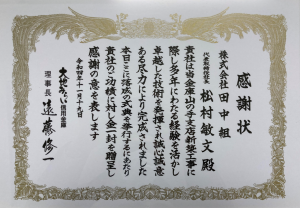 感謝状
株式会社田中組
代表取締役社長
松村敏文殿
貴社は当金庫山の手支店新築工事に
際し多年にわたる経験を活かし
卓越した技術を発揮され誠心誠意
ある尽力により完成されました
本日ここに落成の式典を挙行するにあたり
貴社のご功績に対し金一封を贈呈し
感謝の意を表します
令和四年十一月十九日
大地みらい信用金庫
理事長 遠藤修一